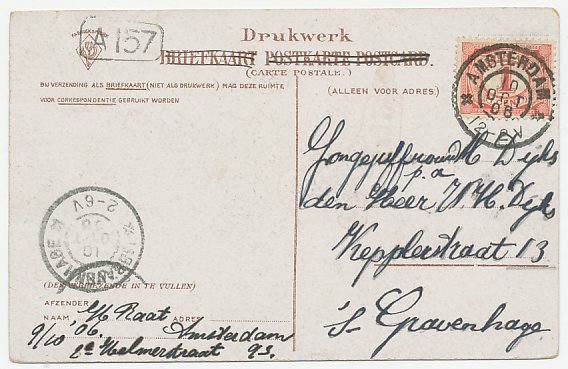 Drukwerk
A 157
BRIEFKAART POSTKARTE POSTCARD.
(CARTE POSTALE.)
BIJ VERZENDING ALS BRIEFKAART (NIET ALS DRUKWERK) MAG DEZE RUIMTE
VOOR CORRESPONDENTIE GEBRUIKT WORDEN
(ALLEEN VOOR ADRES.)
AMSTERDAM
10 OCT 06
12-2V
Jongejuffrouw M. Dijks
p.a
den Heer W.H. Dijks
Kepplerstraat 13
's Gravenhage
'S GRAVENHAGE
2-6V
(DEN AFZENDER IN TE VULLEN)
AFZENDER
NAAM M Raat ADRES Amsterdam
9/10 06. 2e Helmerstraat 93.